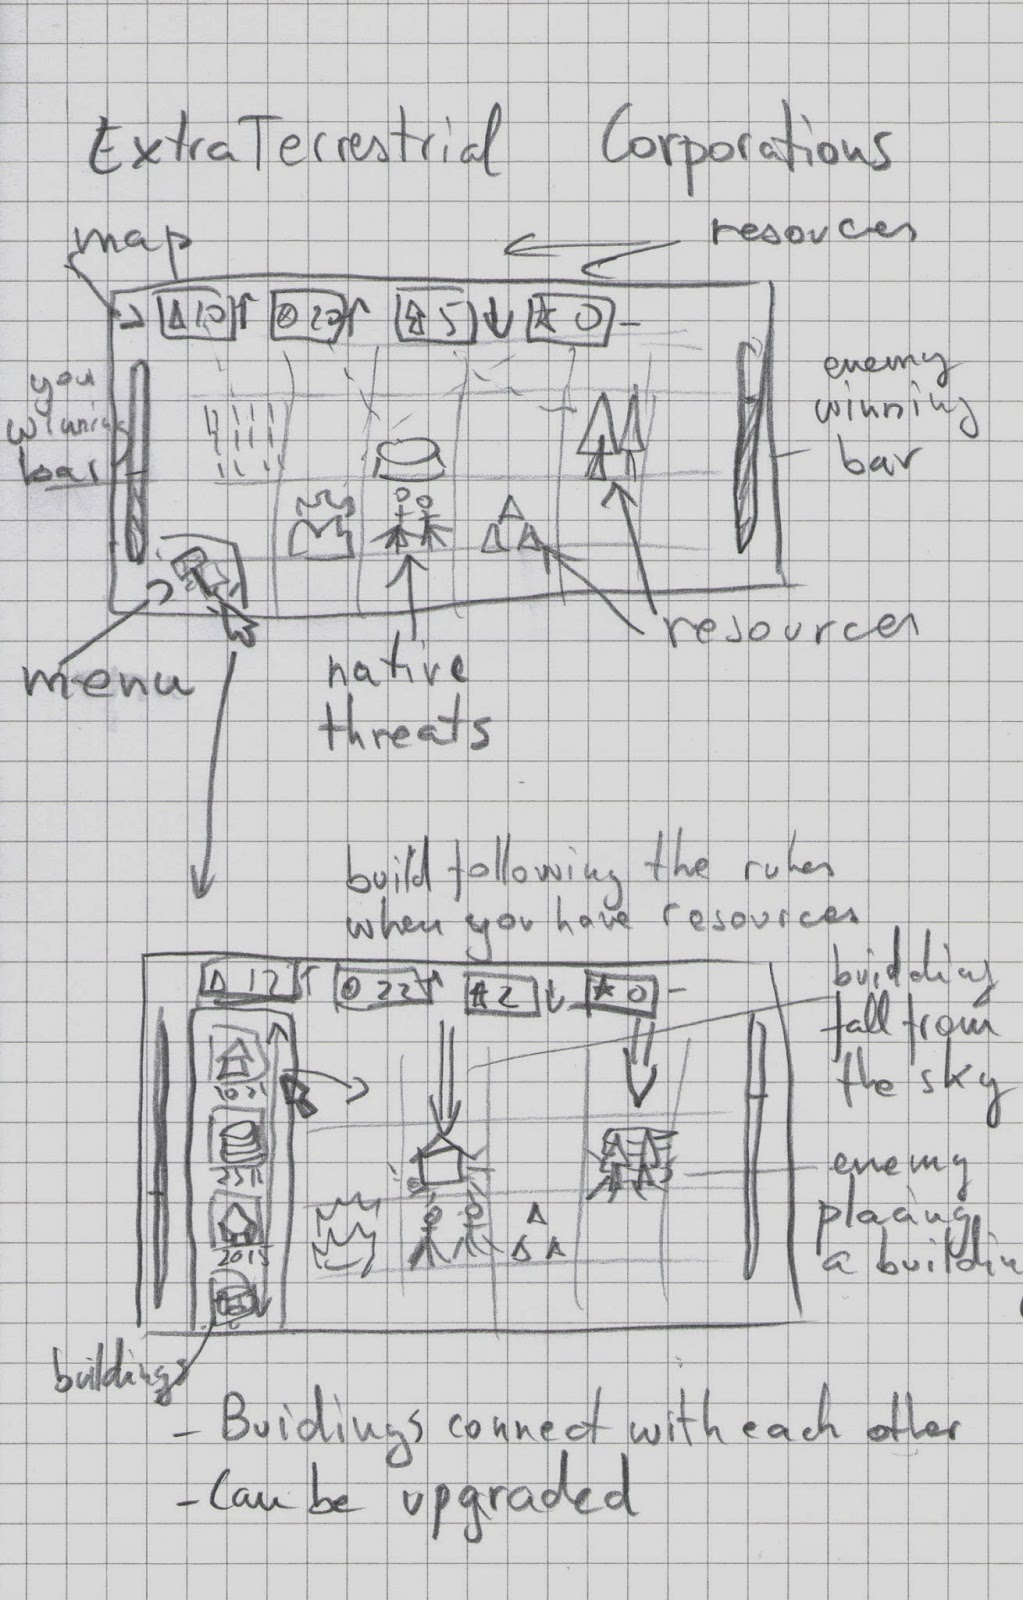 ExtraTerrestrial Corporations
map
resources
10 20 5 0
you
winning
bar
enemy
winning
bar
menu
native
threats
resources
build following the rules
when you have resources
12 22 2 0
buidding
fall from
the sky
enemy
placing
a building
2015
buildings
- Buidings connect with each other
- Can be upgraded